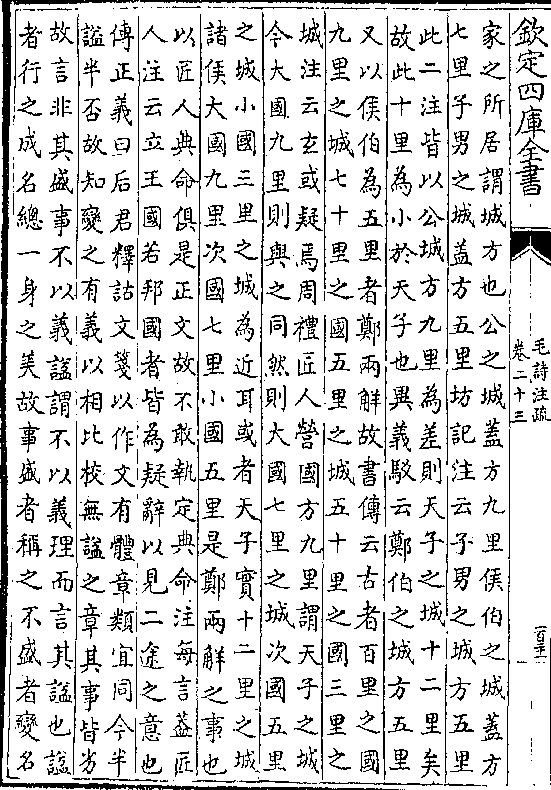 欽定四庫全書
毛詩注疏
卷二十三
家之所居謂城方也公之城蓋方九里侯伯之城蓋方
七里子男之城蓋方五里坊記注云子男之城方五里
此二注皆以公城方九里為差則天子之城十二里矣
故此十里為小於天子也異義駮云鄭伯之城方五里
又以侯伯為五里者鄭兩解故書傳云古者百里之國
九里之城七十里之國五里之城五十里之國三里之
城注云玄或疑焉周禮匠人營國方九里謂天子之城
今大國九里則與之同然則大國七里之城次國五里
之城小國三里之城為近耳或者天子實十二里之城
諸侯大國九里次國七里小國五里是鄭兩解之事也
以匠人典命俱是正文故不敢執定典命注每言蓋匠
人注云立王國若邦國者皆為疑辭以見二途之意也
傳正義曰后君釋詁文箋以作文有體章類宜同今半
謚半否故知變之有義以相比校無謚之章其事皆劣
故言非其盛事不以義謚謂不以義理而言其謚也謚
者行之成名總一身之美故事盛者稱之不盛者變名